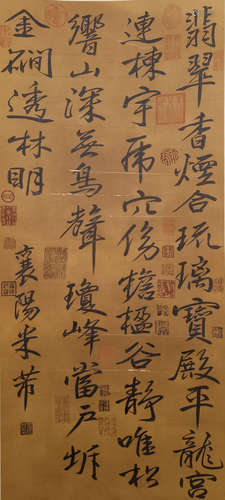 翡翠香煙合琉璃寶殿平龍宮
連棟宇虎穴傍檐楹谷靜唯松
響山深無鳥聲瓊峰當户坼
金磵透林明
襄陽米芾